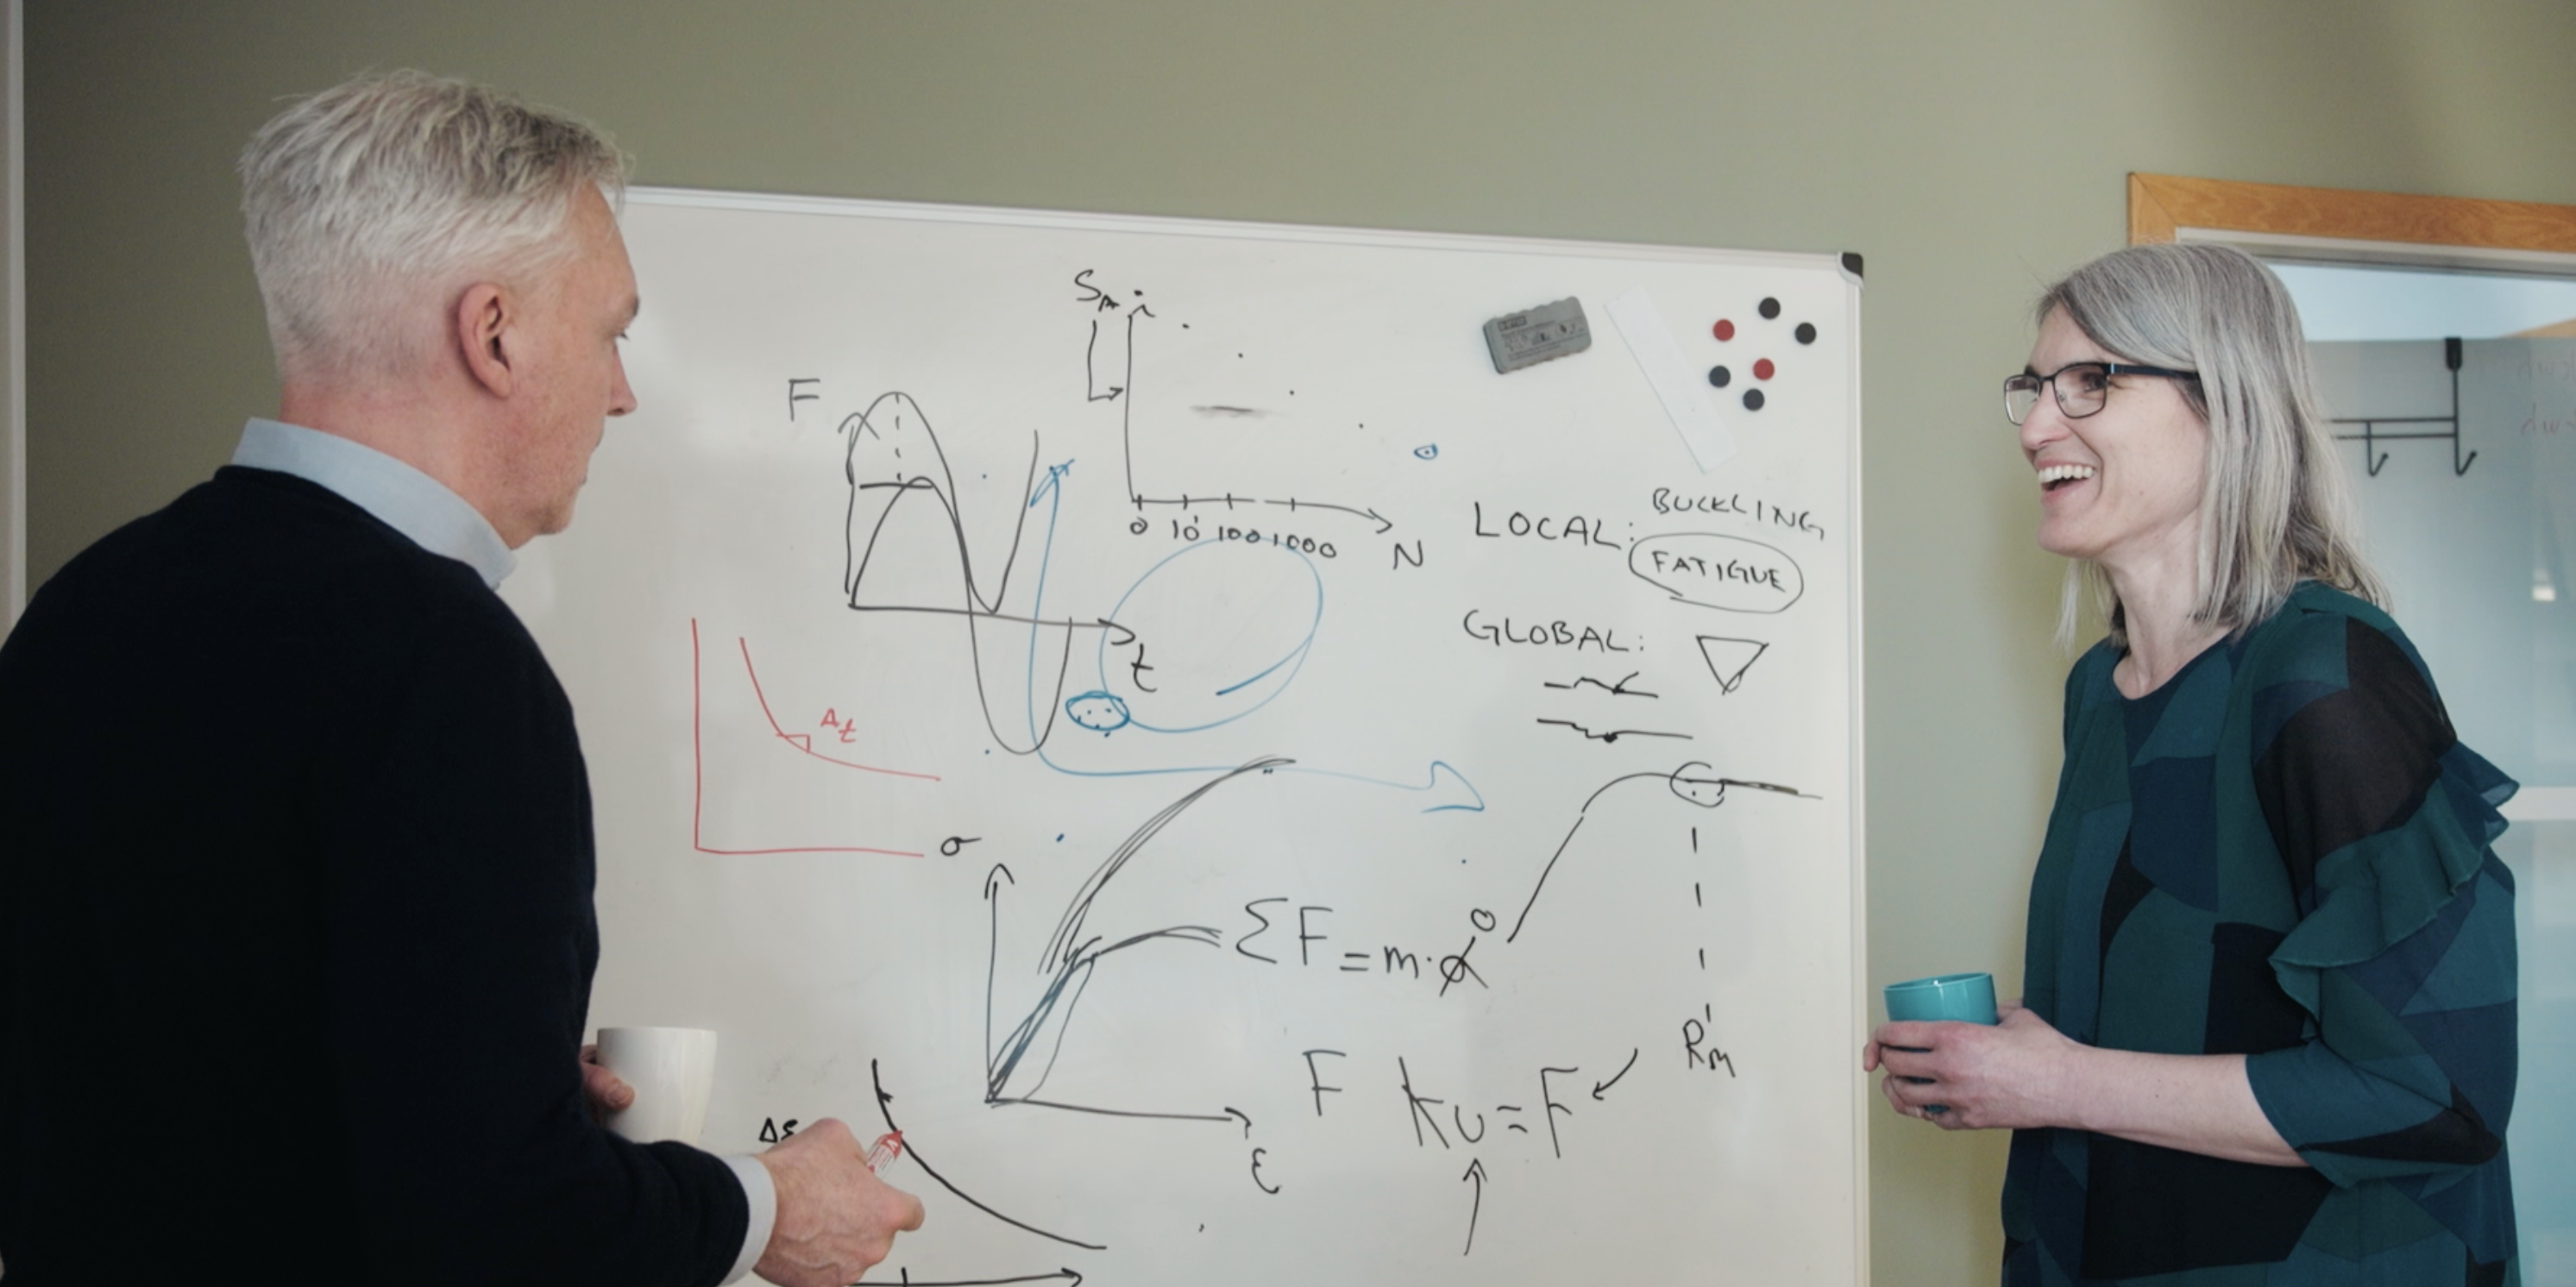 S
F
0 10 100 1000 N
t
LOCAL: BUCKLING
FATIGUE
GLOBAL:
Δt
σ
ΣF = m·a 0
R'm
F Ku = F
Δε
ε